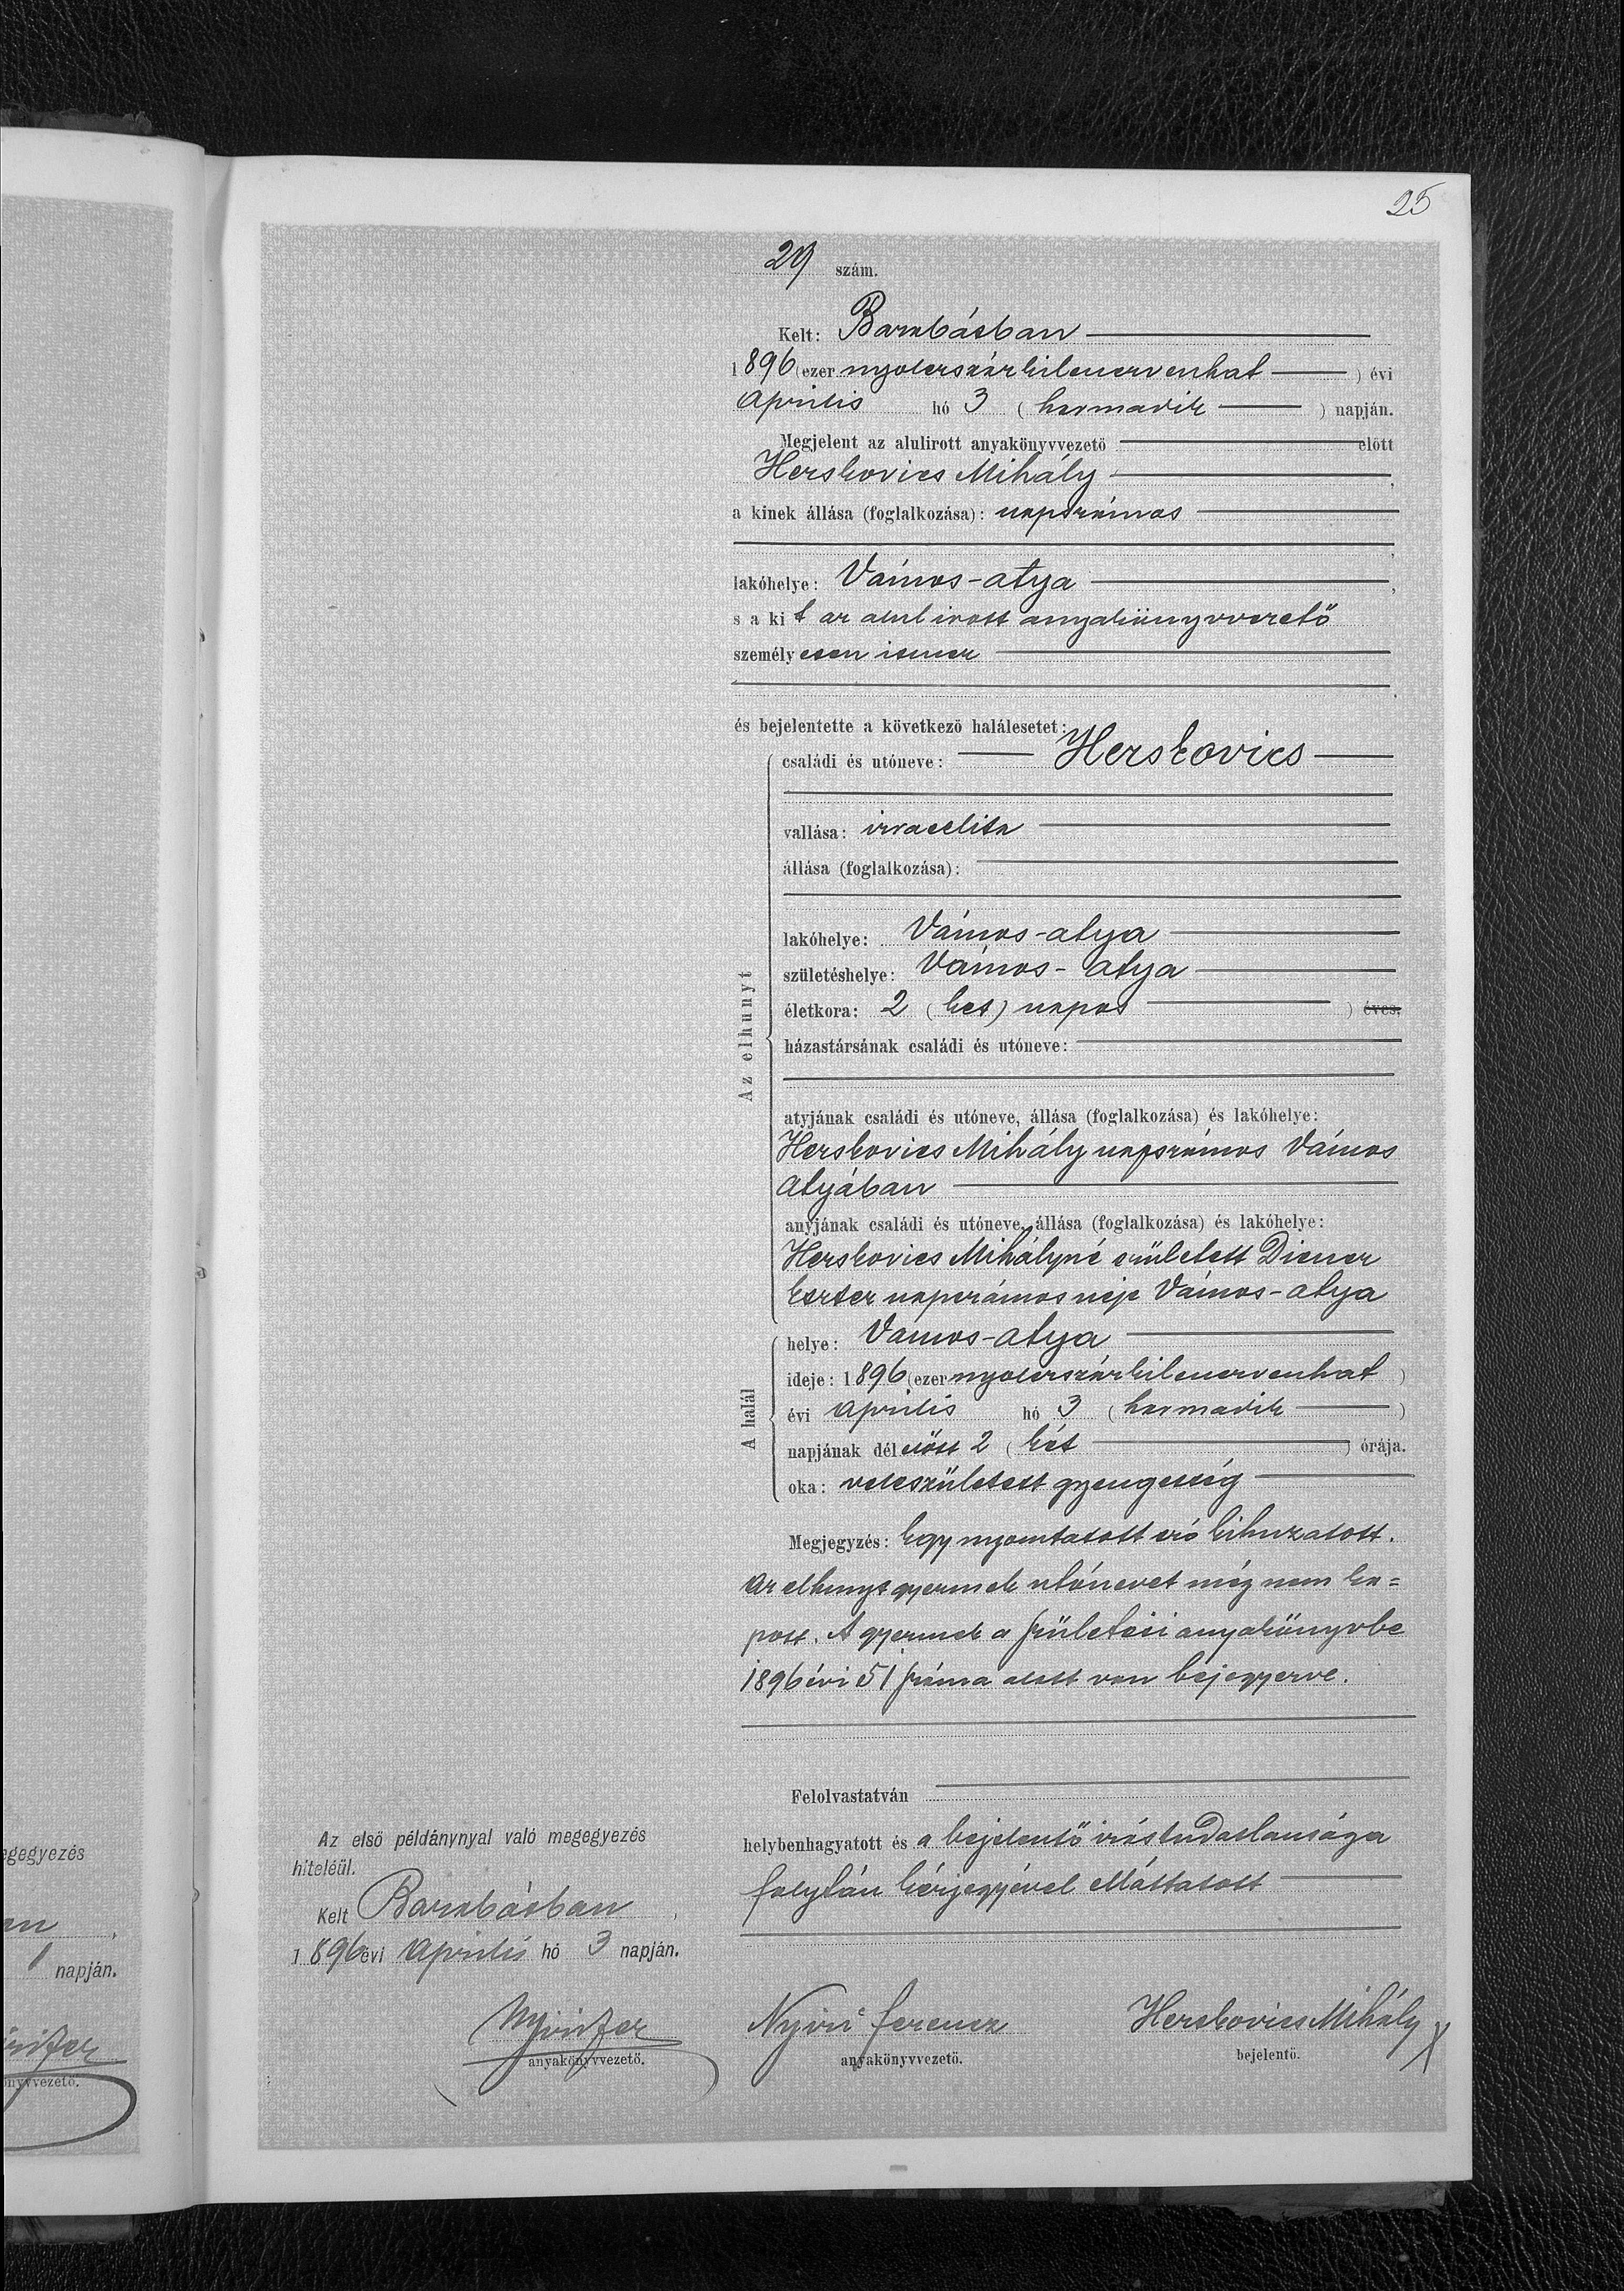 25
29 szám.
Kelt: Barabásban
1896 (ezer nyolcszázkilencvenhat) évi
április hó 3 (harmadik) napján.
Megjelent az alulirott anyakönyvvezető előtt
Herskovics Mihály,
a kinek állása (foglalkozása): napszámos
lakóhelye: Vámos-atya,
s a kit az alulirott anyakönyvvezető
személyesen ismer
és bejelentette a következő halálesetet:
Az elhunyt
családi és utóneve: Herskovics
vallása: izraelita
állása (foglalkozása):
lakóhelye: Vámos-atya
születéshelye: Vámos-atya
életkora: 2 (két) napos ) éves.
házastársának családi és utóneve:
atyjának családi és utóneve, állása (foglalkozása) és lakóhelye:
Herskovics Mihály napszámos Vámos
atyában
anyjának családi és utóneve, állása (foglalkozása) és lakóhelye:
Herskovics Mihályné született Diener
Eszter napszámos neje Vámos-atya
A halál
helye: Vámos-atya
ideje: 1896 (ezer nyolcszázkilencvenhat)
évi április hó 3 (harmadik)
napjának délelőtt 2 (két) órája.
oka: veleszületett gyengeség
Megjegyzés: Egy nyomtatott szó kihuzatott.
Az elhunyt gyermek utónevet még nem ka=
pott. A gyermek a születési anyakönyvbe
1896 évi 51 száma alatt van bejegyezve.
Felolvastatván
helybenhagyatott és a bejelentő irástudatlansága
folytán kézjegyével elláttatott
Az első példánynyal való megegyezés
hiteléül.
Kelt Barabásban,
1896 évi április hó 3 napján.
anyakönyvvezető.
Nyiri Ferencz
anyakönyvvezető.
Herskovics Mihály X
bejelentő.
egegyezés
an,
1 napján.